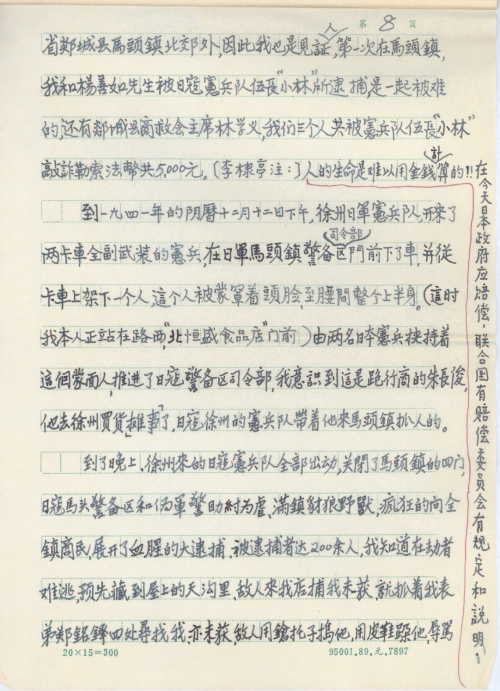 第 8 页
省郯城县馬頭鎮北郊外,因此我也是见証人,第一次在馬頭鎮,
我和楊善如先生被日寇憲兵队伍長“小林”所逮捕,是一起被难
的,还有郯城县商救会主席林学义,我们三个人共被憲兵队伍長“小林”
敲詐勒索法幣共5,000元。(李棟亭注:)人的生命是难以用金銭计算的!!
到一九四一年的阴曆十二月十二日下午,徐州日軍憲兵队,开來了
两卡車全副武装的憲兵,在日軍馬頭鎮警备区司令部門前下了車,并従
卡車上架下一个人,這个人被蒙罩着頭脸,至腰間整个上半身。(這时
我本人正站在路西,“北恒盛食品店”门前)由两名日本憲兵挟持着
這個蒙面人,推進了日寇警备区司令部,我意識到這是跑行商的朱長俊,
他去徐州買貨“摊事”了,日寇徐州的憲兵队帶着他來馬頭鎮抓人的。
到了晚上、徐州來的日寇憲兵队全部出动,关閉了馬頭鎮的四门,
日寇馬头警备区和伪軍警助紂为虐、滿鎮豺狼野獸,疯狂的向全
鎮商民,展开了血腥的大逮捕,被逮捕者达200余人,我知道在劫者
难逃,预先藏到屋上的天沟里,敌人來我店捕我未获,就抓着我表
弟郑銘鐸四处尋找我,亦未获,敌人用鎗托子搗他,用皮鞋踩他,辱罵
在今天日本政府应赔偿,联合国有赔偿委员会有规定和説明。
20×15=300
95001.89.元.7897